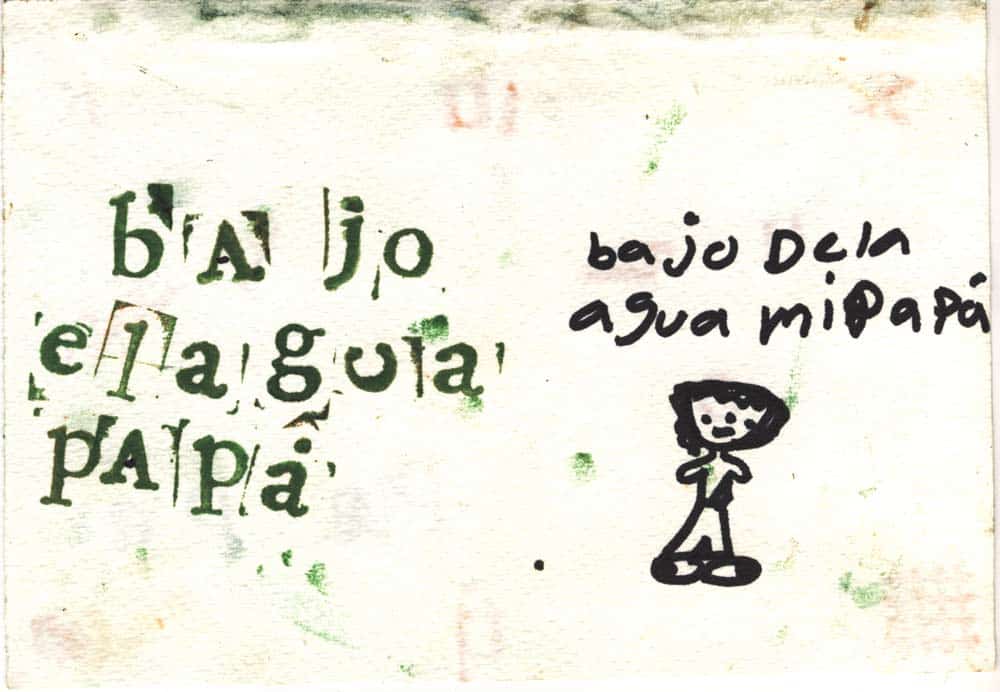 bAjo
el agua
pApá
bajo Dela
agua mi Papá